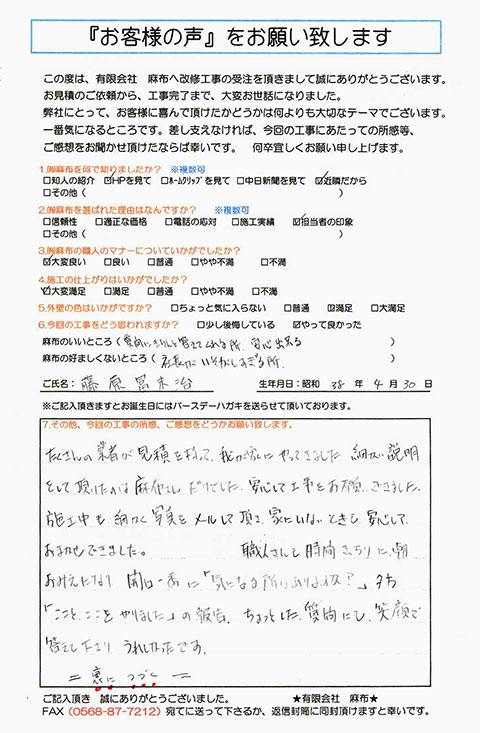 『お客様の声』をお願い致します
この度は、有限会社 麻布へ改修工事の受注を頂きまして誠にありがとうございます。
お見積のご依頼から、工事完了まで、大変お世話になりました。
弊社にとって、お客様に喜んで頂けたかどうかは何よりも大切なテーマでございます。
一番気になるところです。差し支えなければ、今回の工事にあたっての所感等、
ご感想をお聞かせ頂けたならば幸いです。 何卒宜しくお願い申し上げます。
1.㈲麻布を何で知りましたか? ※複数可
□知人の紹介 ☑HPを見て □ホームクリップを見て □中日新聞を見て ☑近隣だから
□その他 ( )
2.㈲麻布を選ばれた理由はなんですか? ※複数可
□信頼性 □適正な価格 □電話の応対 □施工実績 ☑担当者の印象
□その他 ( )
3.㈲麻布の職人のマナーについていかがでしたか?
☑大変良い □良い □普通 □やや不満 □不満
4.施工の仕上がりはいかがでしたか?
☑大変満足 □満足 □普通 □やや不満 □不満
5.外壁の色はいかがですか? □ちょっと気に入らない □普通 ☑満足 □大満足
6.今回の工事をどう思われますか? □少し後悔している ☑やって良かった
麻布のいいところ ( 質問にきちんと答えてくれる所、安心出来る )
麻布の好ましくないところ ( 社長がいそがしすぎる所. )
ご氏名: 藤原 富木治 生年月日:昭和 38 年 4 月 30 日
※ご記入頂きますとお誕生日にはバースデーハガキを送らせて頂いております。
7.その他、今回の工事の所感、ご感想をどうかお願い致します。
たくさんの業者が見積を持って、私が家にやってきました 細かい説明
をして頂けたのは麻布さんだけでした。安心して工事をお願いできました。
施工中も細かく写真をメールして頂き、家にいないときも安心して
おまかせできました。 職人さんも時間きっちりに、朝
おみえになり 開口一番に「気になる所はありますか?」夕方
「こことここをやりました」の報告。ちょっとした質問にも、笑顔で
答えて下さり うれしかったです。
= 裏につづく =
ご記入頂き 誠にありがとうございました。 ★有限会社 麻布★
FAX (0568-87-7212) 宛てに送って下さるか、返信封筒に同封頂けますと幸いです。